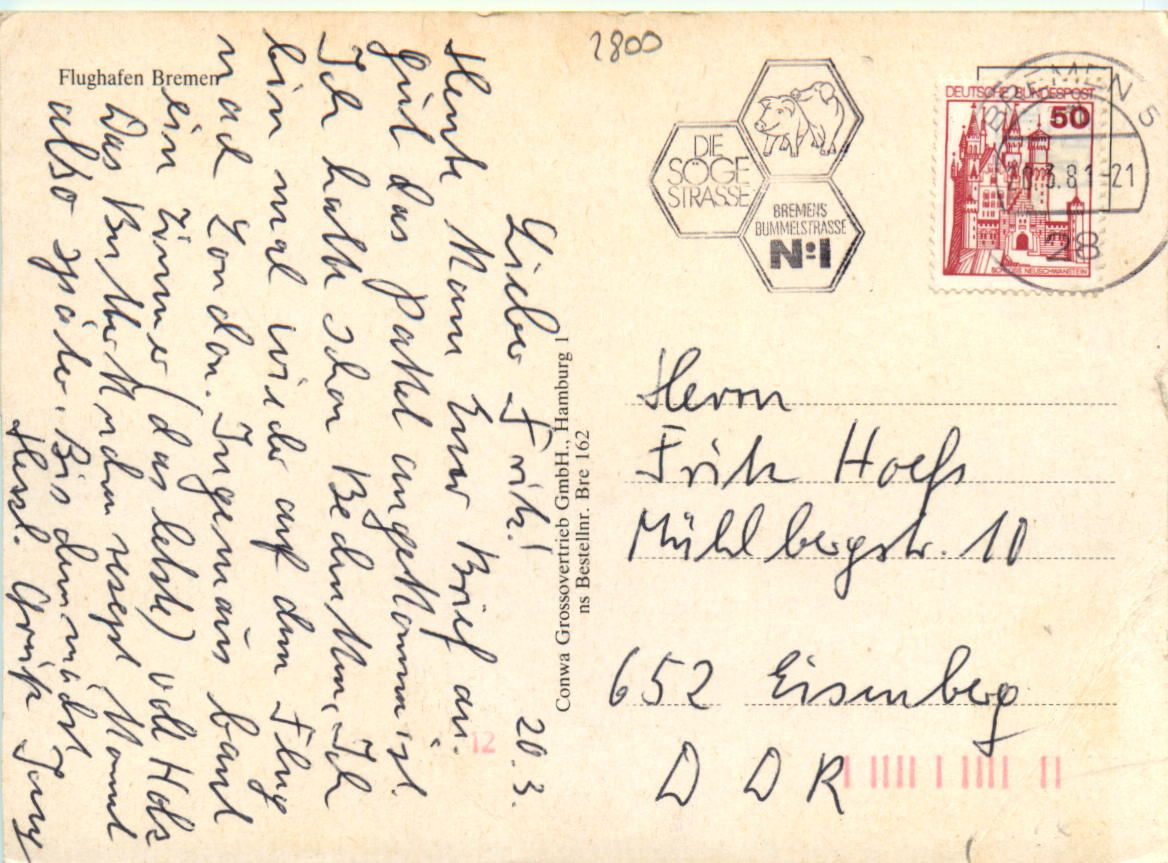 2800
Flughafen Bremen
DIE
SÖGE
STRASSE
BREMENS
BUMMELSTRASSE
No 1
DEUTSCHE BUNDESPOST
50
SCHLOSS NEUSCHWANSTEIN
BREMEN 5
20.3.81-21
28
Lieber Fritz! 20. 3.
Heute kam Euer Brief an.
Gut das Paket angekommen ist.
Ich hatte schon Bedenken, Ich
bin mal wieder auf dem Flug
nach London. Ingemaus baut
ein Zimmer (das letzte) voll Holz
Das kommt
also später. Bis demnächst
Herzl. Grüße
Conwa Grossovertrieb GmbH., Hamburg 1
ns Bestellnr. Bre 162
Herrn
Fritz Hoefs
Mühlbergstr. 10
652 Eisenberg
DDR
12